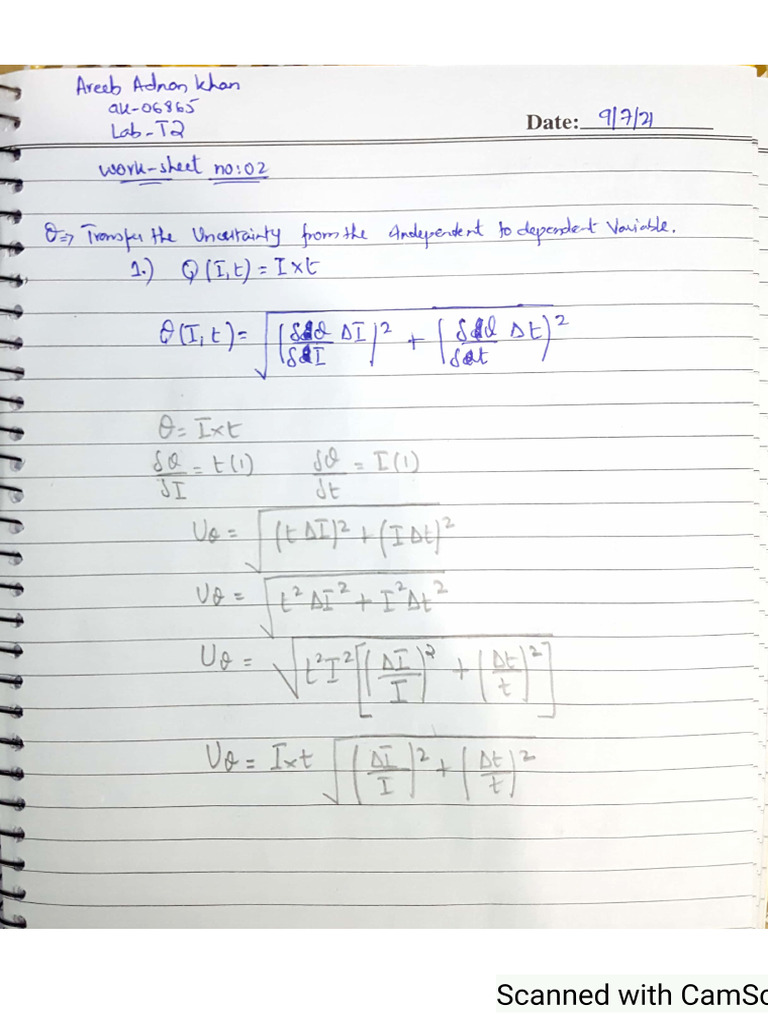 Areeb Adnan Khan
ak-06865
Lab-T2
Date: 9/7/21
Work-sheet no:02
Q⇒ Transfer the Uncertainty from the independent to dependent Variable.
1.) Q(I,t) = I×t
Q(I,t) = √((δQ/δI ΔI)² + (δQ/δt Δt)²)
Q = I×t
δQ/δI = t(1) δQ/δt = I(1)
UQ = √((tΔI)² + (IΔt)²)
UQ = √(t²ΔI² + I²Δt²)
UQ = √(t²I²[(ΔI/I)² + (Δt/t)²])
UQ = I×t √((ΔI/I)² + (Δt/t)²)
Scanned with CamSc